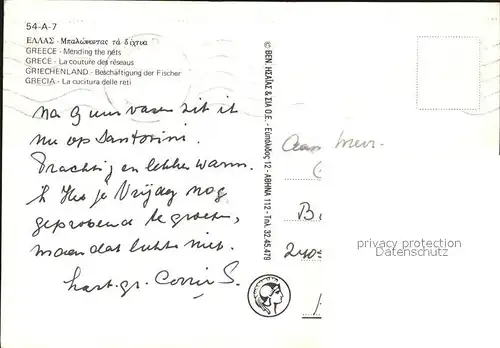 54-A-7
ΕΛΛΑΣ - Μπαλώνοντας τά δίχτυα
GREECE - Mending the nets
GRECE - La couture des réseaux
GRIECHENLAND - Beschäftigung der Fischer
GRECIA - La cucitura delle reti
na 9 uur varen zit ik
nu op Santorini.
Prachtig en lekker warm.
k Heb je Vrijdag nog
geprobeerd te groeten,
maar dat lukte niet.
hart. gr. Corrie S.
© ΒΕΝ. ΗΣΑΪΑΣ & ΣΙΑ Ο.Ε. - Ευπόλιδος 12 - ΑΘΗΝΑ 112 - Τηλ. 32.45.479
Aan Mevr.
B
privacy protection
Datenschutz